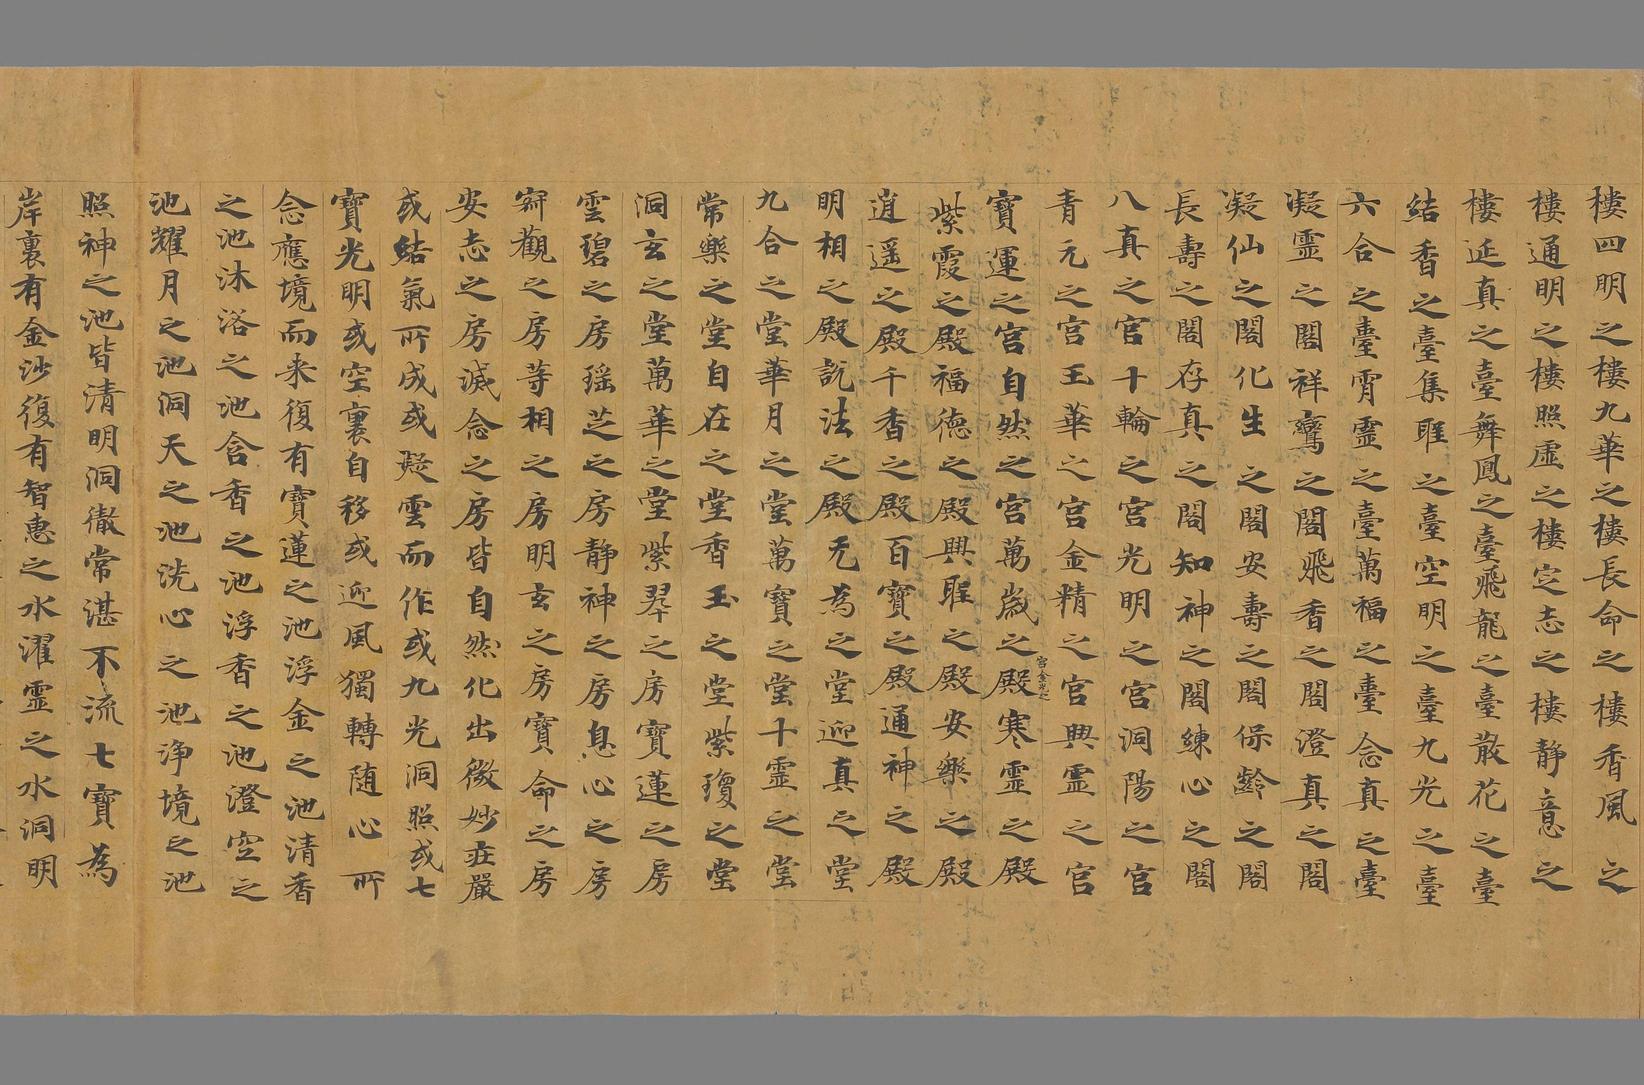 樓四明之樓九華之樓長命之樓香風之
樓通明之樓照虛之樓定志之樓靜意之
樓延真之臺舞鳳之臺飛龍之臺散花之臺
結香之臺集聖之臺空明之臺九光之臺
六合之臺霄靈之臺萬福之臺念真之臺
凝靈之閣祥鸞之閣飛香之閣澄真之閣
凝仙之閣化生之閣安壽之閣保齡之閣
長壽之閣存真之閣知神之閣練心之閣
八真之宮十輪之宮光明之宮洞陽之宮
青元之宮玉華之宮金精之宮興靈之宮
寶運之宮自然之宮萬歲之殿寒靈之殿
宮金光之
紫霞之殿福德之殿興聖之殿安樂之殿
逍遥之殿千香之殿百寶之殿通神之殿
明相之殿說法之殿无為之堂迎真之堂
九合之堂華月之堂萬寶之堂十靈之堂
常樂之堂自在之堂香玉之堂紫瓊之堂
洞玄之堂萬華之堂紫翠之房寶蓮之房
雲碧之房瑶芝之房静神之房息心之房
竂觀之房等相之房明玄之房寶命之房
安志之房滅念之房皆自然化出微妙莊嚴
或結氣所成或凝雲而作或九光洞照或七
寶光明或空裏自移或迎風獨轉随心所
念應境而来復有寶蓮之池浮金之池清香
之池沐浴之池含香之池浮香之池澄空之
池耀月之池洞天之池洗心之池浄境之池
照神之池皆清明洞徹常湛不流七寶為
岸裏有金沙復有智惠之水濯靈之水洞明